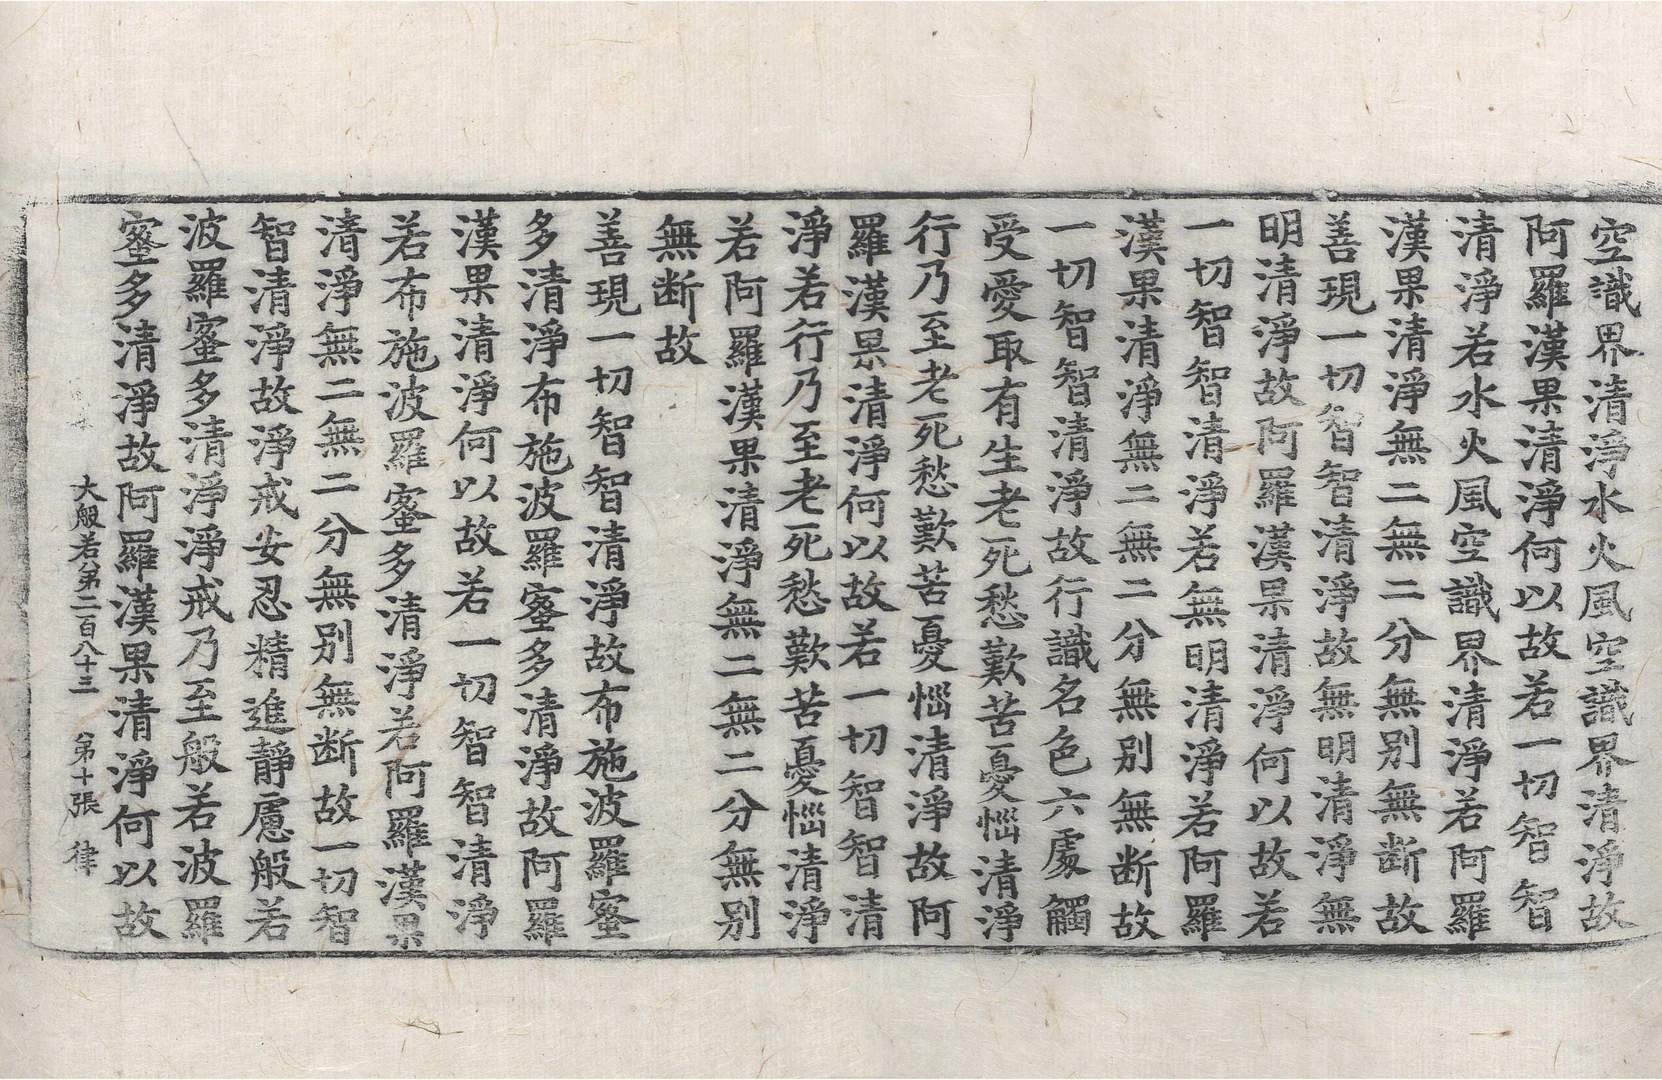 空識界清淨水火風空識界清淨故
阿羅漢果清淨何以故若一切智智
清淨若水火風空識界清淨若阿羅
漢果清淨無二無二分無別無断故
善現一切智智清淨故無明清淨無
明清淨故阿羅漢果清淨何以故若
一切智智清淨若無明清淨若阿羅
漢果清淨無二無二分無別無断故
一切智智清淨故行識名色六處觸
受愛取有生老死愁歎苦憂惱清淨
行乃至老死愁歎苦憂惱清淨故阿
羅漢果清淨何以故若一切智智清
淨若行乃至老死愁歎苦憂惱清淨
若阿羅漢果清淨無二無二分無別
無断故
善現一切智智清淨故布施波羅蜜
多清淨布施波羅蜜多清淨故阿羅
漢果清淨何以故若一切智智清淨
若布施波羅蜜多清淨若阿羅漢果
清淨無二無二分無別無断故一切智
智清淨故淨戒安忍精進靜慮般若
波羅蜜多清淨淨戒乃至般若波羅
蜜多清淨故阿羅漢果清淨何以故
大般若第二百八十三 第十張 律